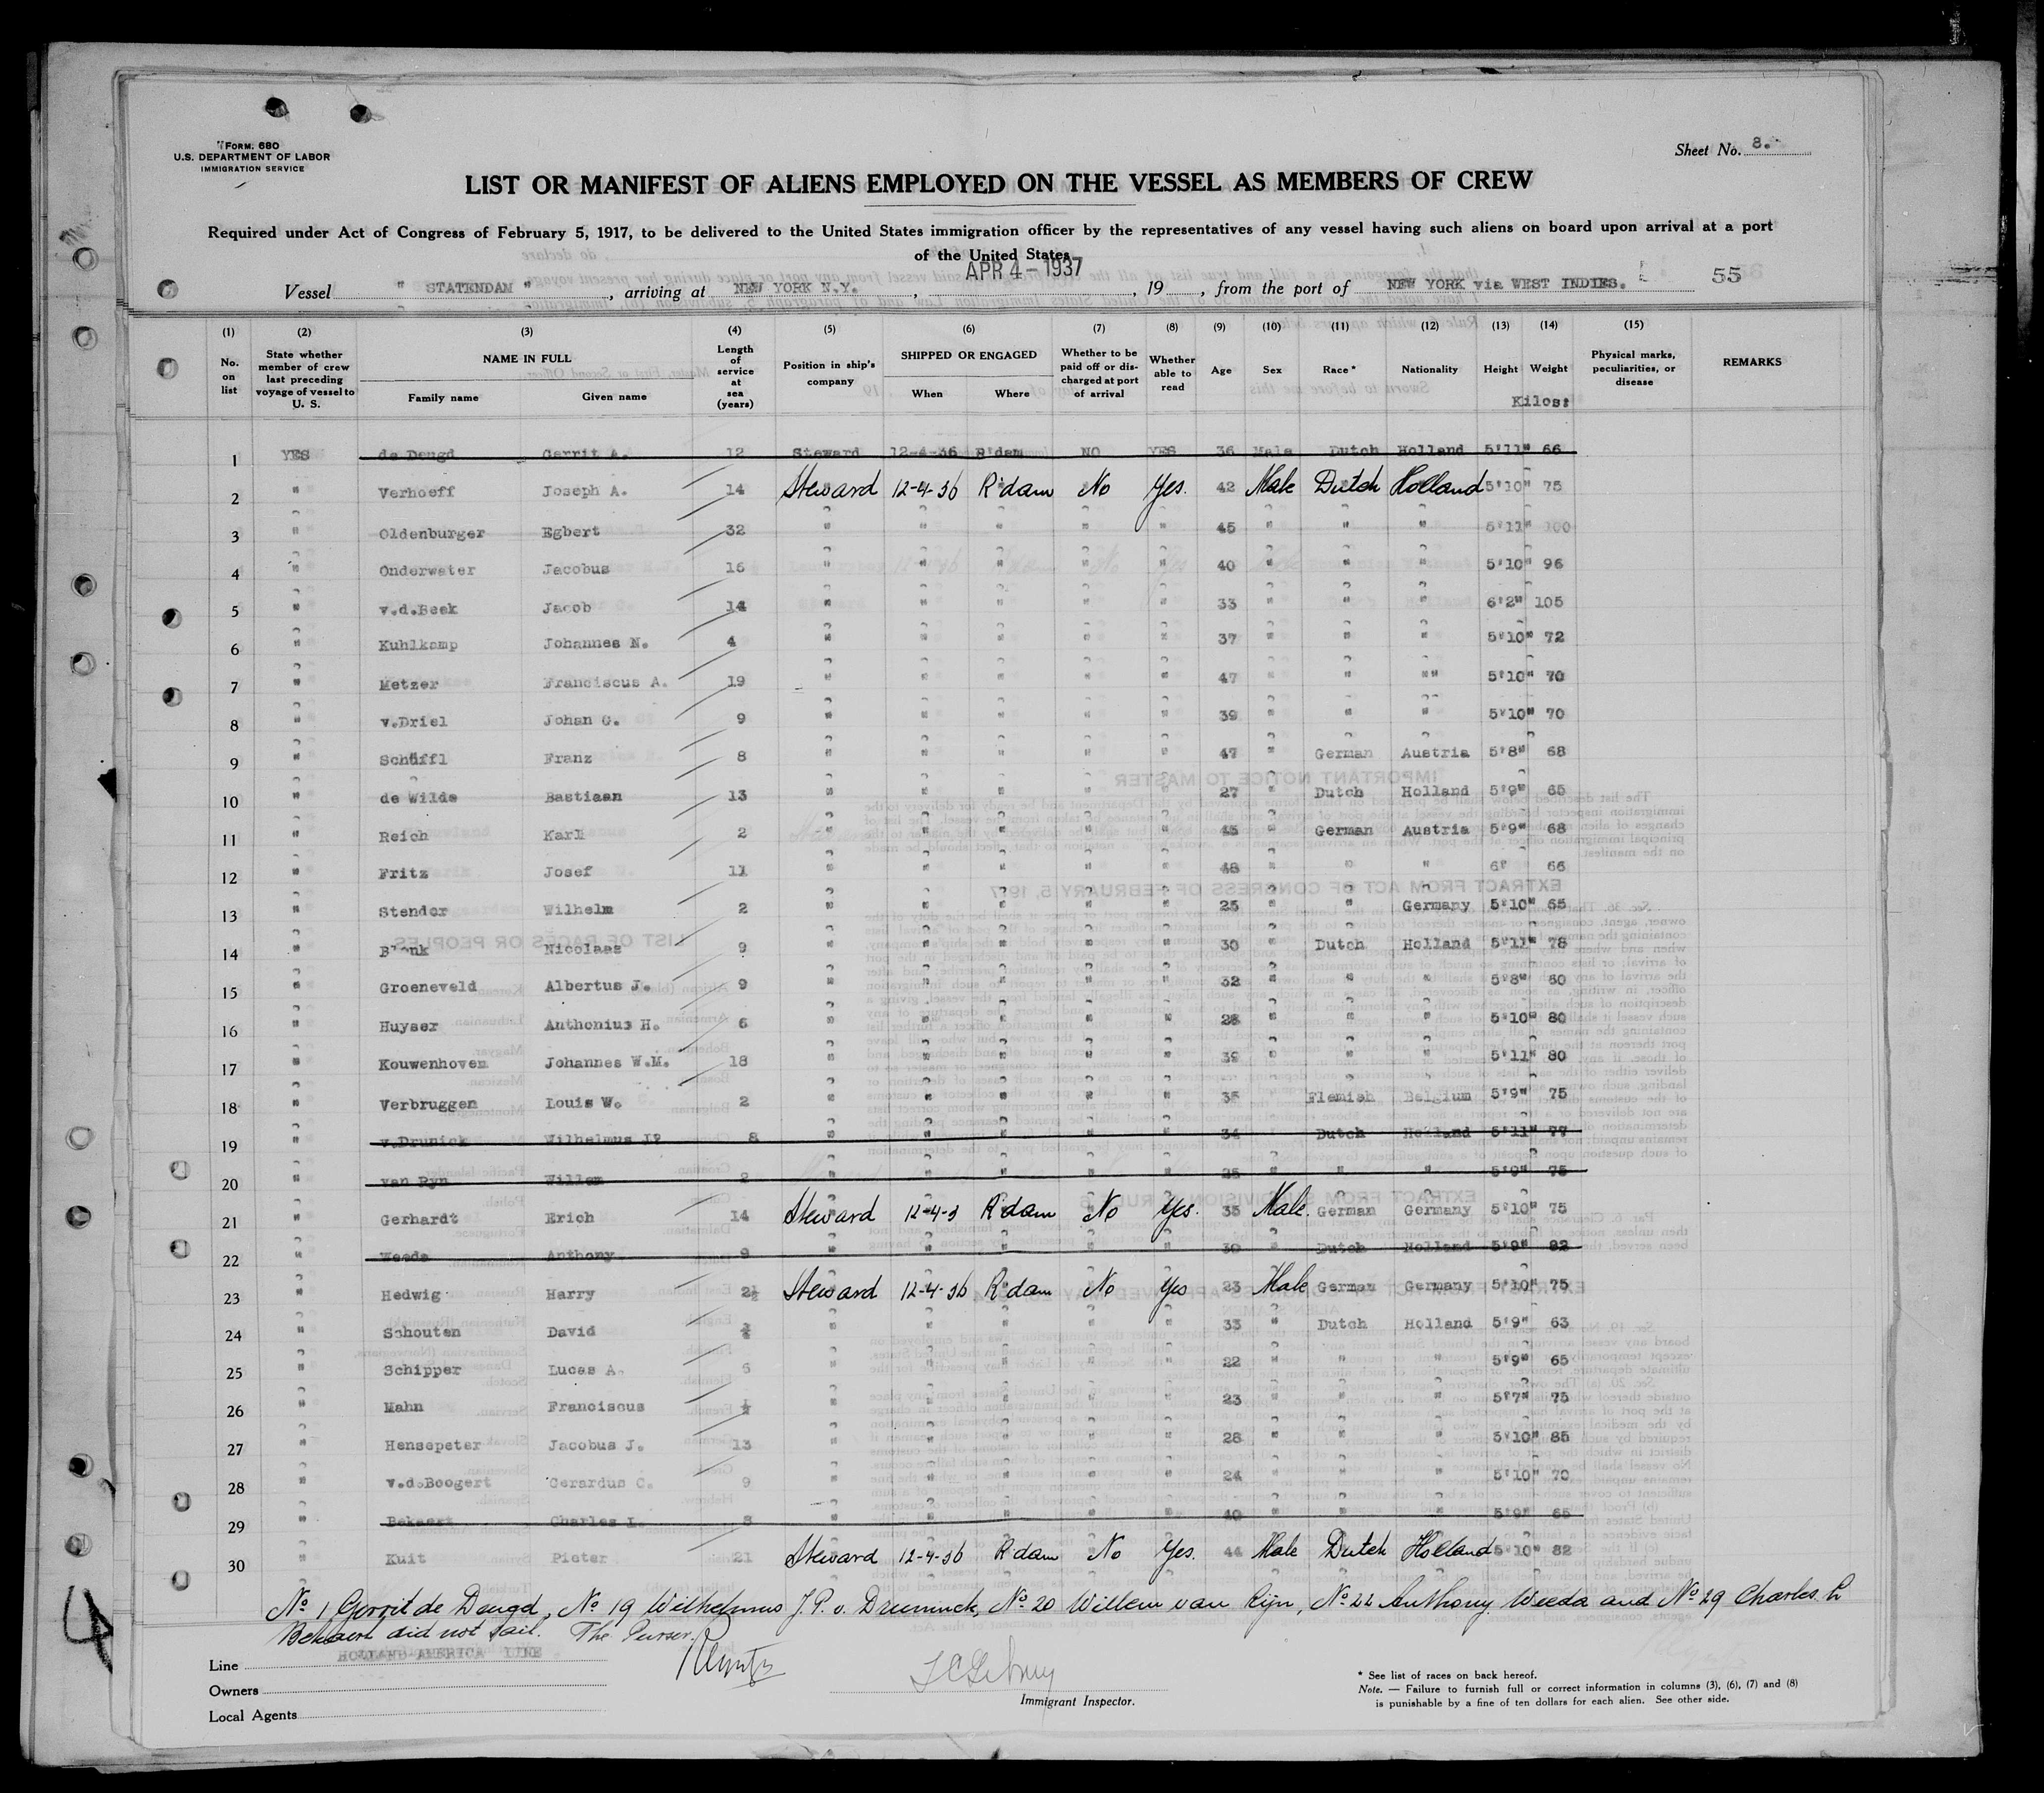 FORM. 680
U.S. DEPARTMENT OF LABOR
IMMIGRATION SERVICE
Sheet No. 8.
LIST OR MANIFEST OF ALIENS EMPLOYED ON THE VESSEL AS MEMBERS OF CREW
Required under Act of Congress of February 5, 1917, to be delivered to the United States immigration officer by the representatives of any vessel having such aliens on board upon arrival at a port
of the United States
APR 4 - 1937
Vessel " STATENDAM ", arriving at NEW YORK N.Y. , 19 , from the port of NEW YORK via WEST INDIES. 55
(1) (2) (3) (4) (5) (6) (7) (8) (9) (10) (11) (12) (13) (14) (15)
No. on list State whether member of crew last preceding voyage of vessel to U. S. NAME IN FULL Family name Given name Length of service at sea (years) Position in ship's company SHIPPED OR ENGAGED When Where Whether to be paid off or discharged at port of arrival Whether able to read Age Sex Race* Nationality Height Weight Physical marks, peculiarities, or disease REMARKS
Kilos:
1 YES de Deugd Gerrit A. 12 Steward 12-4-36 R'dam NO YES 36 Male Dutch Holland 5'11" 66
2 " Verhoeff Joseph A. 14 Steward 12-4-36 R'dam No Yes. 42 Male Dutch Holland 5'10" 75
3 " Oldenburger Egbert 32 " " " " " 45 " " " 5'11" 100
4 " Onderwater Jacobus 16 " " " " " 40 " " " 5'10" 96
5 " v.d.Beek Jacob 14 " " " " " 33 " " " 6'2" 105
6 " Kuhlkamp Johannes N. 4 " " " " " 37 " " " 5'10" 72
7 " Metzer Franciscus A. 19 " " " " " 47 " " "" 5'10" 70
8 " v.Driel Johan G. 9 " " " " " 39 " " " 5'10" 70
9 " Schüffl Franz 8 " " " " " 47 " German Austria 5'8" 68
10 " de Wilde Bastiaan 13 " " " " " 27 " Dutch Holland 5'9" 65
11 " Reich Karl 2 " " " " " 45 " German Austria 5'9" 68
12 " Fritz Josef 11 " " " " " 48 " " " 6' 66
13 " Stender Wilhelm 2 " " " " " 25 " " Germany 5'10" 65
14 " Blonk Nicolaas 9 " " " " " 30 " Dutch Holland 5'11" 78
15 " Groeneveld Albertus J. 9 " " " " " 32 " " " 5'8" 60
16 " Huyser Anthonius H. 6 " " " " " 28 " " " 5'10" 80
17 " Kouwenhoven Johannes W.M. 18 " " " " " 39 " " " 5'11" 80
18 " Verbruggen Louis W. 2 " " " " " 35 Flemish Belgium 5'9" 75
19 " v.Drunick Wilhelmus JP 8 " " " " " 34 " Dutch Holland 5'11" 77
20 " van Ryn Willem 2 " " " " " 25 " " " 5'9" 75
21 " Gerhardt Erich 14 Steward 12-4-3 R'dam No Yes. 35 Male. German Germany 5'10" 75
22 " Weeda Anthony 9 " " " " " 30 " Dutch Holland 5'9" 82
23 " Hedwig Harry 2½ Steward 12-4-36 R'dam No Yes 23 Male German Germany 5'10" 75
24 " Schouten David " " " " " 33 " Dutch Holland 5'9" 63
25 " Schipper Lucas A. 6 " " " " " 22 " " " 5'9" 65
26 " Mahn Franciscus ½ " " " " " 23 " " " 5'7" 75
27 " Hensepeter Jacobus J. 13 " " " " " 28 " " " 5'10" 85
28 " v.d.Boogert Gerardus C. 9 " " " " " 24 " " " 5'10" 70
29 " Bekaert Charles L. 8 " " " " " 40 " " " 5'9" 65
30 " Kuit Pieter 21 Steward 12-4-36 R'dam No Yes. 44 Male Dutch Holland 5'10" 82
No 1 Gerrit de Deugd, No 19 Wilhelmus J.P. v. Druninck, No 20 Willem van Rijn, No 22 Anthony Weeda and No 29 Charles L
Bekaert did not sail. The Purser.
Line HOLLAND-AMERICA LINE
Owners
Local Agents
Immigrant Inspector.
* See list of races on back hereof.
Note. — Failure to furnish full or correct information in columns (3), (6), (7) and (8)
is punishable by a fine of ten dollars for each alien. See other side.